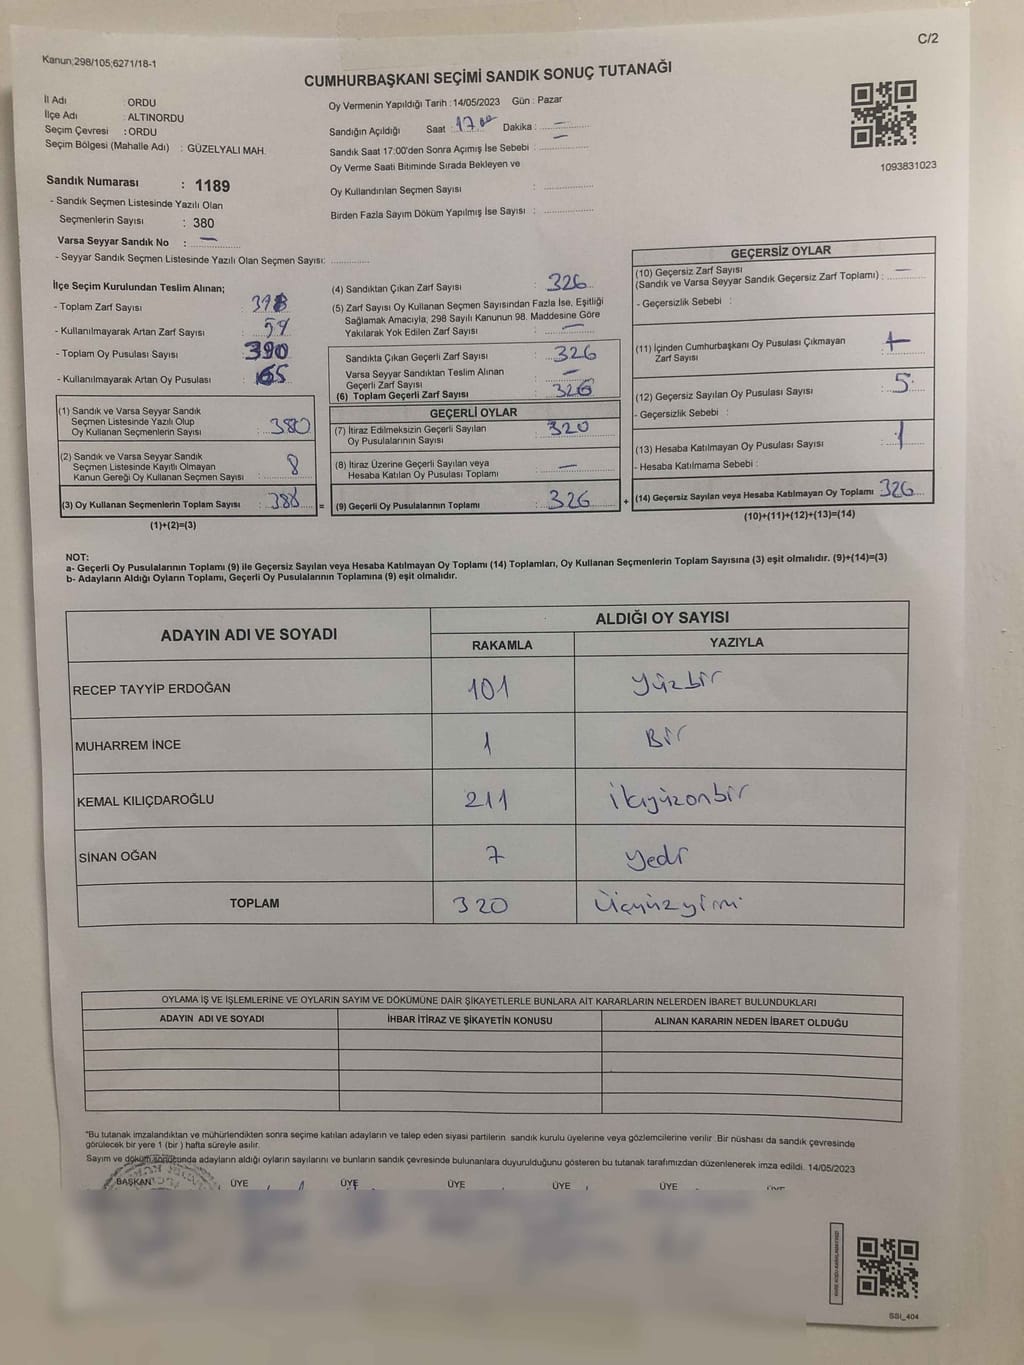 C/2
Kanun;298/105;6271/18-1
CUMHURBAŞKANI SEÇİMİ SANDIK SONUÇ TUTANAĞI
İl Adı : ORDU
İlçe Adı : ALTINORDU
Seçim Çevresi : ORDU
Seçim Bölgesi (Mahalle Adı) : GÜZELYALI MAH.
Oy Vermenin Yapıldığı Tarih : 14/05/2023 Gün : Pazar
Sandığın Açıldığı Saat : 17.00 Dakika : —
Sandık Saat 17:00'den Sonra Açımış İse Sebebi : —
Oy Verme Saati Bitiminde Sırada Bekleyen ve
Oy Kullandırılan Seçmen Sayısı :
Birden Fazla Sayım Döküm Yapılmış İse Sayısı :
1093831023
Sandık Numarası : 1189
- Sandık Seçmen Listesinde Yazılı Olan
Seçmenlerin Sayısı : 380
Varsa Seyyar Sandık No : —
- Seyyar Sandık Seçmen Listesinde Yazılı Olan Seçmen Sayısı:
İlçe Seçim Kurulundan Teslim Alınan;
- Toplam Zarf Sayısı :
- Kullanılmayarak Artan Zarf Sayısı :
- Toplam Oy Pusulası Sayısı : 390
- Kullanılmayarak Artan Oy Pusulası :
(1) Sandık ve Varsa Seyyar Sandık
Seçmen Listesinde Yazılı Olup
Oy Kullanan Seçmenlerin Sayısı : 380
(2) Sandık ve Varsa Seyyar Sandık
Seçmen Listesinde Kayıtlı Olmayan
Kanun Gereği Oy Kullanan Seçmen Sayısı : 8
(3) Oy Kullanan Seçmenlerin Toplam Sayısı : 388 =
(1)+(2)=(3)
(4) Sandıktan Çıkan Zarf Sayısı : 326
(5) Zarf Sayısı Oy Kullanan Seçmen Sayısından Fazla İse, Eşitliği
Sağlamak Amacıyla, 298 Sayılı Kanunun 98. Maddesine Göre
Yakılarak Yok Edilen Zarf Sayısı : —
Sandıkta Çıkan Geçerli Zarf Sayısı : 326
Varsa Seyyar Sandıktan Teslim Alınan
Geçerli Zarf Sayısı : —
(6) Toplam Geçerli Zarf Sayısı : 326
GEÇERLİ OYLAR
(7) İtiraz Edilmeksizin Geçerli Sayılan
Oy Pusulalarının Sayısı : 320
(8) İtiraz Üzerine Geçerli Sayılan veya
Hesaba Katılan Oy Pusulası Toplamı : —
(9) Geçerli Oy Pusulalarının Toplamı : 326 +
GEÇERSİZ OYLAR
(10) Geçersiz Zarf Sayısı
(Sandık ve Varsa Seyyar Sandık Geçersiz Zarf Toplamı) : —
- Geçersizlik Sebebi :
(11) İçinden Cumhurbaşkanı Oy Pusulası Çıkmayan
Zarf Sayısı :
(12) Geçersiz Sayılan Oy Pusulası Sayısı : 5
- Geçersizlik Sebebi :
(13) Hesaba Katılmayan Oy Pusulası Sayısı : 1
- Hesaba Katılmama Sebebi :
(14) Geçersiz Sayılan veya Hesaba Katılmayan Oy Toplamı 326
(10)+(11)+(12)+(13)=(14)
NOT:
a- Geçerli Oy Pusulalarının Toplamı (9) ile Geçersiz Sayılan veya Hesaba Katılmayan Oy Toplamı (14) Toplamları, Oy Kullanan Seçmenlerin Toplam Sayısına (3) eşit olmalıdır. (9)+(14)=(3)
b- Adayların Aldığı Oyların Toplamı, Geçerli Oy Pusulalarının Toplamına (9) eşit olmalıdır.
ADAYIN ADI VE SOYADI
ALDIĞI OY SAYISI
RAKAMLA YAZIYLA
RECEP TAYYİP ERDOĞAN 101 Yüzbir
MUHARREM İNCE 1 Bir
KEMAL KILIÇDAROĞLU 211 ikiyüzonbir
SİNAN OĞAN 7 Yedi
TOPLAM 320 Üçyüzyirmi
OYLAMA İŞ VE İŞLEMLERİNE VE OYLARIN SAYIM VE DÖKÜMÜNE DAİR ŞİKAYETLERLE BUNLARA AİT KARARLARIN NELERDEN İBARET BULUNDUKLARI
ADAYIN ADI VE SOYADI İHBAR İTİRAZ VE ŞİKAYETİN KONUSU ALINAN KARARIN NEDEN İBARET OLDUĞU
"Bu tutanak imzalandıktan ve mühürlendikten sonra seçime katılan adayların ve talep eden siyasi partilerin sandık kurulu üyelerine veya gözlemcilerine verilir. Bir nüshası da sandık çevresinde
görülecek bir yere 1 (bir ) hafta süreyle asılır.
Sayım ve döküm sonucunda adayların aldığı oyların sayılarını ve bunların sandık çevresinde bulunanlara duyurulduğunu gösteren bu tutanak tarafımızdan düzenlenerek imza edildi. 14/05/2023
BAŞKAN ÜYE ÜYE ÜYE ÜYE ÜYE ÜYE
SSI_404